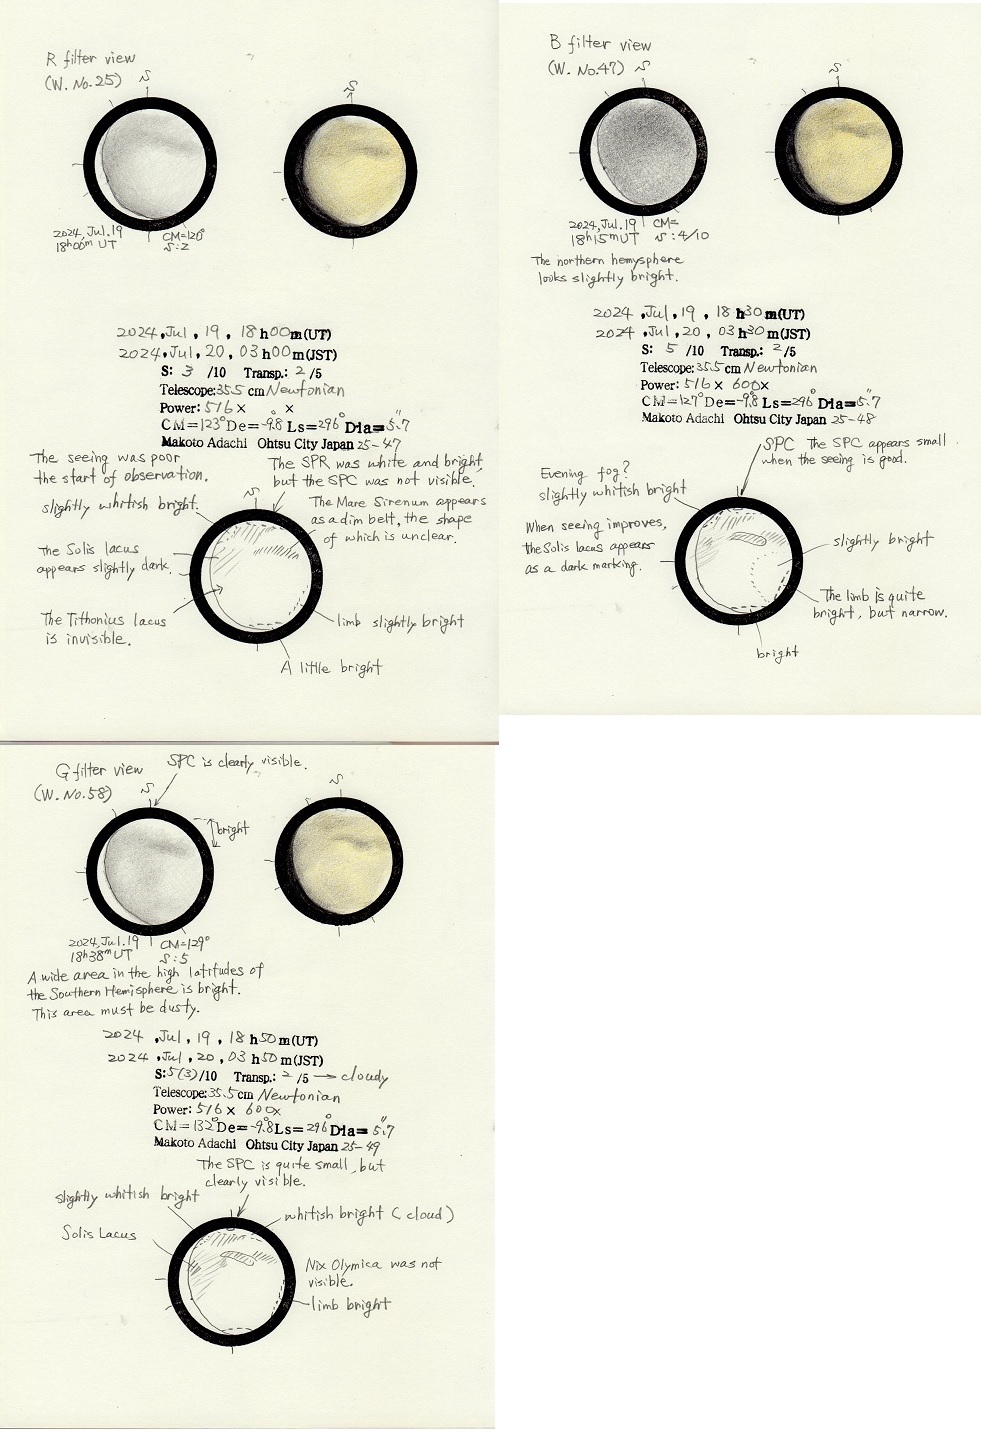 R filter view
(W. No.25)
S
S
2024, Jul.19
18h00m UT
CM=120°
S:2
2024, Jul, 19, 18h00m(UT)
2024, Jul, 20, 03h00m(JST)
S: 3 /10 Transp.: 2 /5
Telescope: 35.5 cm Newtonian
Power: 516× ×
CM=123° De=-9.8° Ls=296° Dia=5.7"
Makoto Adachi Ohtsu City Japan 25-47
The seeing was poor
the start of observation.
The SPR was white and bright,
but the SPC was not visible.
slightly whitish bright.
S
The Mare Sirenum appears
as a dim belt, the shape
of which is unclear.
The Solis lacus
appears slightly dark.
The Tithonius lacus
is invisible.
limb slightly bright
A little bright
B filter view
(W. No.47)
S
S
2024, Jul.19
18h15m UT
CM=
S:4/10
The northern hemysphere
looks slightly bright.
2024, Jul, 19, 18h30m(UT)
2024, Jul, 20, 03h30m(JST)
S: 5 /10 Transp.: 2 /5
Telescope: 35.5 cm Newtonian
Power: 516× 600×
CM=127° De=-9.8° Ls=296° Dia=5.7"
Makoto Adachi Ohtsu City Japan 25-48
SPC The SPC appears small
when the seeing is good.
Evening fog?
slightly whitish bright
When seeing improves,
the Solis lacus appears
as a dark marking.
slightly bright
The limb is quite
bright, but narrow.
bright
G filter view
(W. No.58)
SPC is clearly visible.
S
S
bright
2024, Jul.19
18h38m UT
CM=129°
S:5
A wide area in the high latitudes of
the Southern Hemisphere is bright.
This area must be dusty.
2024, Jul, 19, 18h50m(UT)
2024, Jul, 20, 03h50m(JST)
S: 5(3)/10 Transp.: 2 /5 → cloudy
Telescope: 35.5 cm Newtonian
Power: 516× 600×
CM=132° De=-9.8° Ls=296° Dia=5.7"
Makoto Adachi Ohtsu City Japan 25-49
The SPC is quite small, but
clearly visible.
slightly whitish bright
whitish bright (cloud)
Solis Lacus
Nix Olymica was not
visible.
limb bright